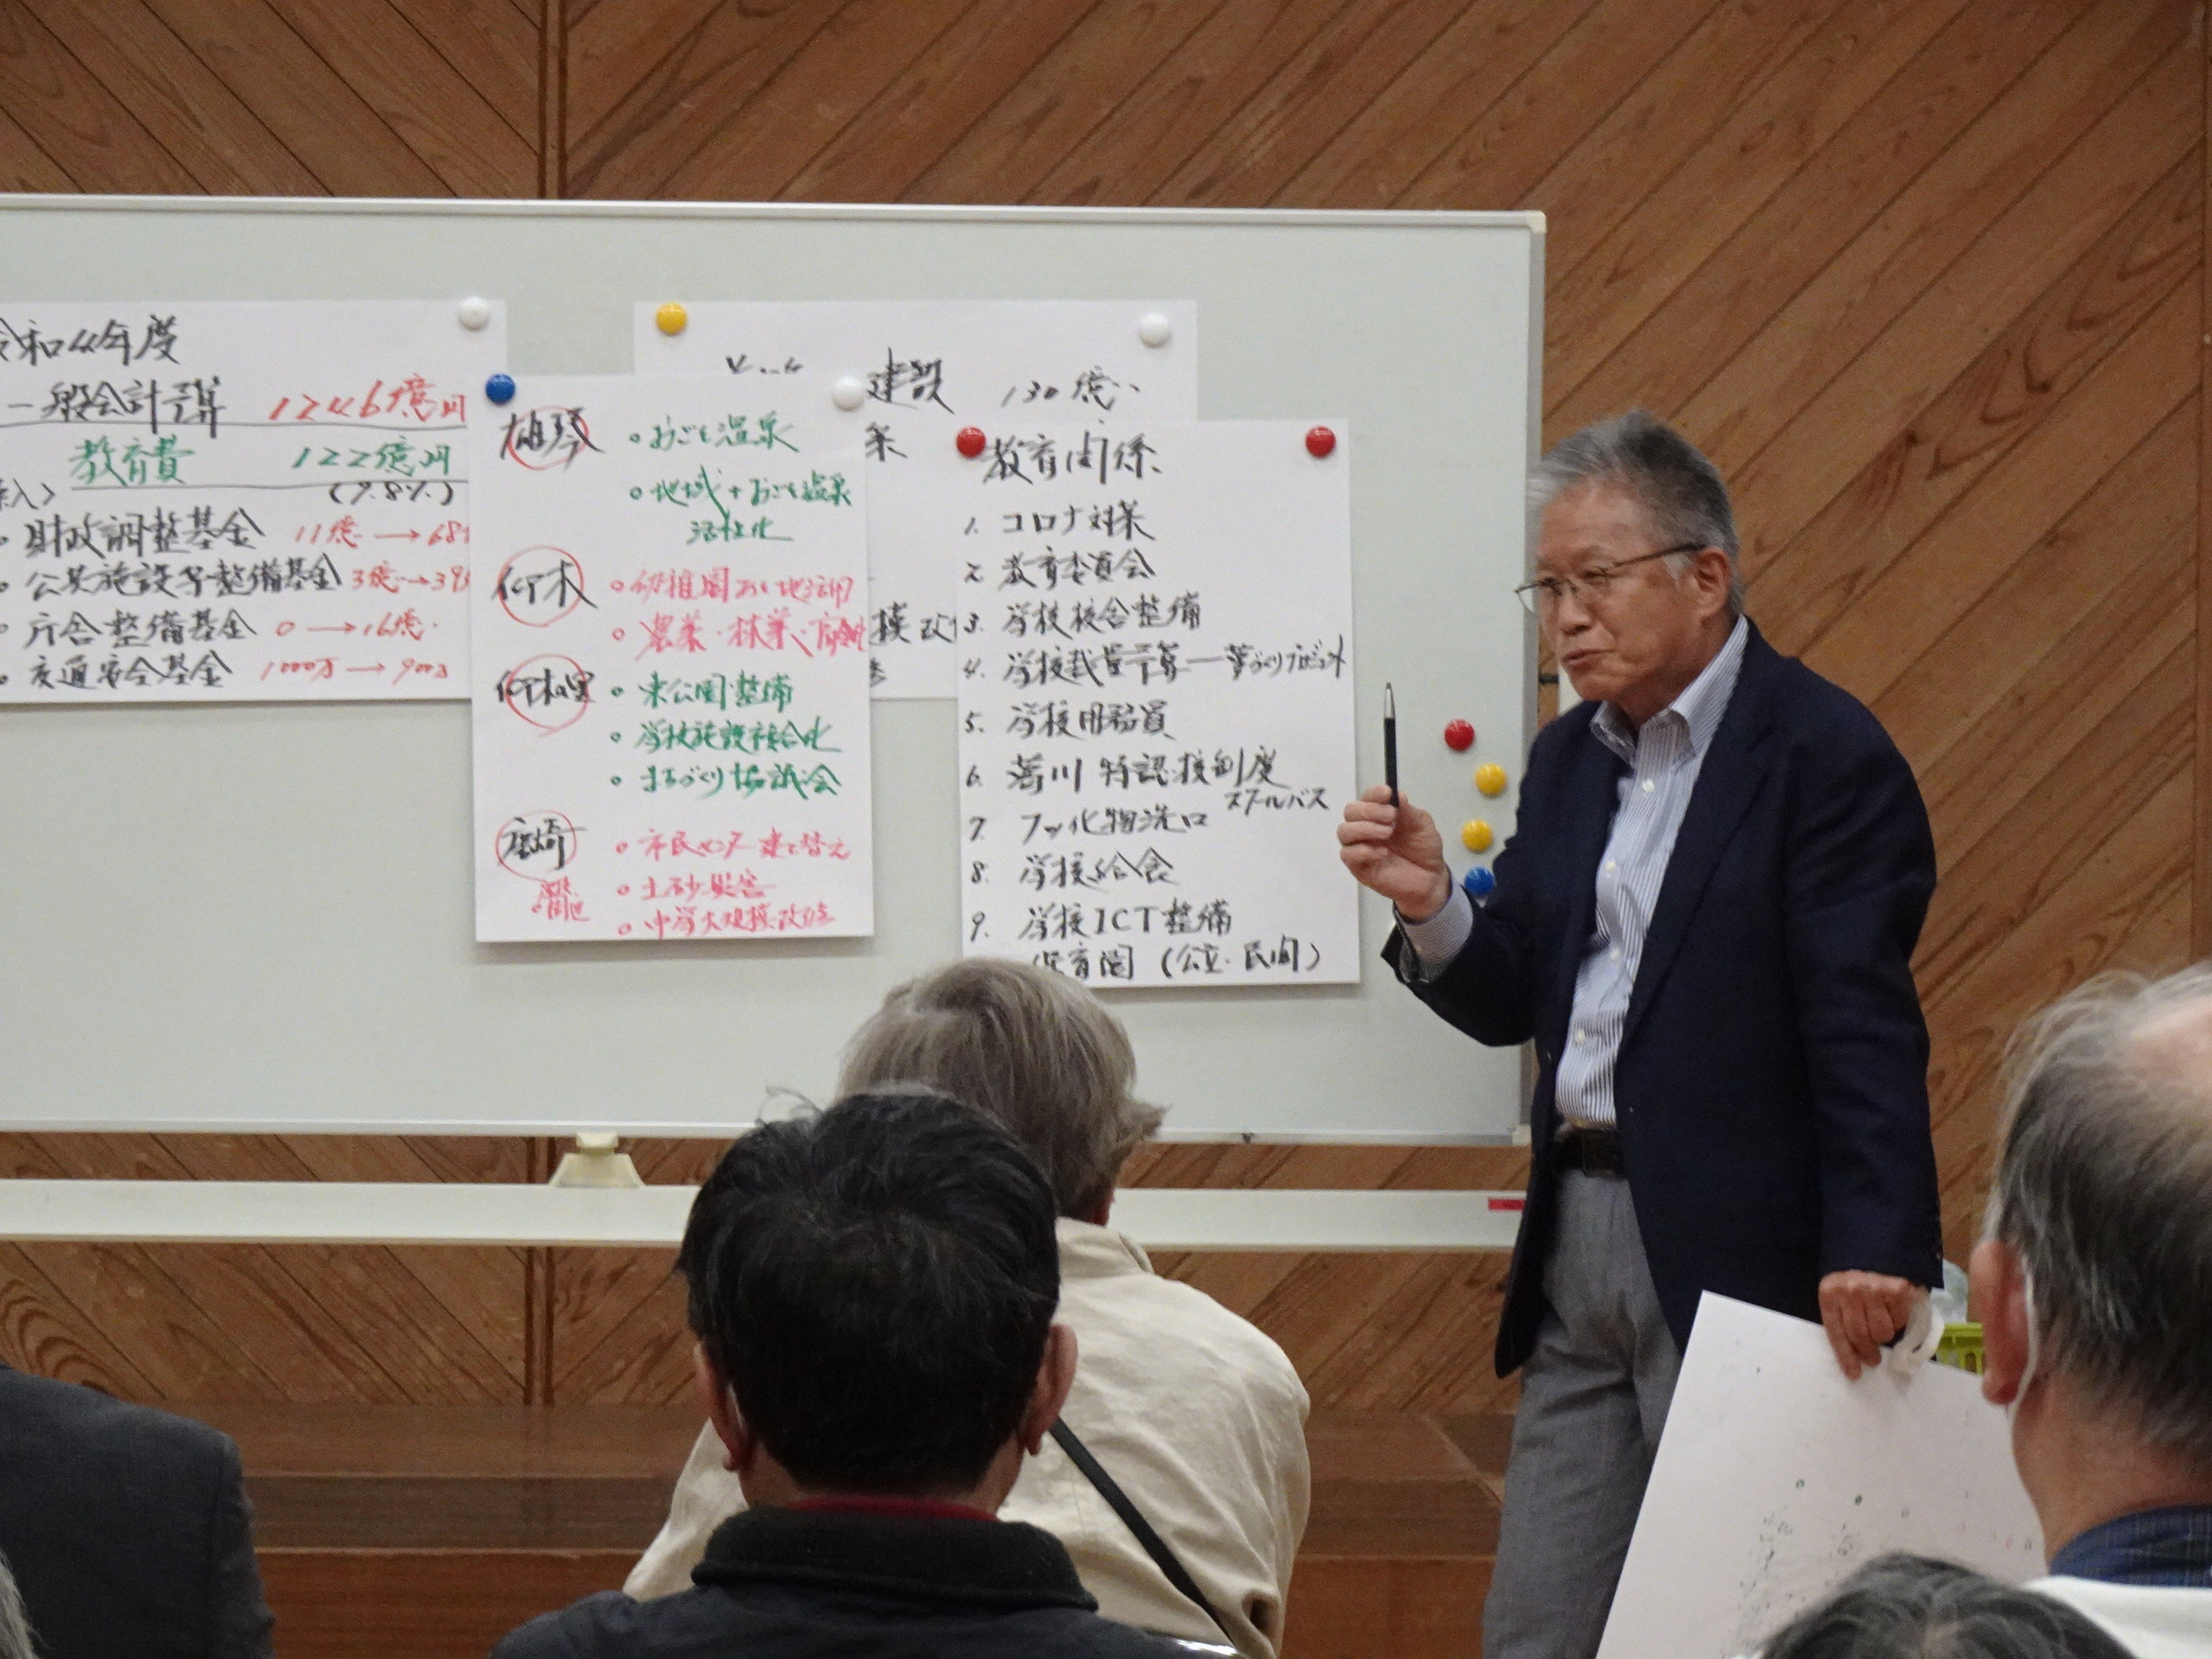 令和4年度
一般会計予算 1246億円
教育費 122億円
(9.8%)
入>
○財政調整基金 11億→68
○公共施設等整備基金 3億→39
○庁舎整備基金 0→16億
○交通安全基金 1000万→900万
建設 130億
業
模改
雄琴 ○おごと温泉
○地域+おごと温泉
活性化
仰木 ○幼稚園あと地活用
○農業・林業・
仰木の里 ○末公園整備
○学校施設複合化
○まちづくり協議会
唐崎 ○市民センター建て替え
○土砂災害
○中学大規模改修
教育関係
1. コロナ対策
2. 教育委員会
3. 学校校舎整備
4. 学校裁量予算―夢づくりプロジェクト
5. 学校用務員
6. 葛川 特認校制度
スクールバス
7. フッ化物洗口
8. 学校給食
9. 学校ICT整備
保育園 (公立・民間)